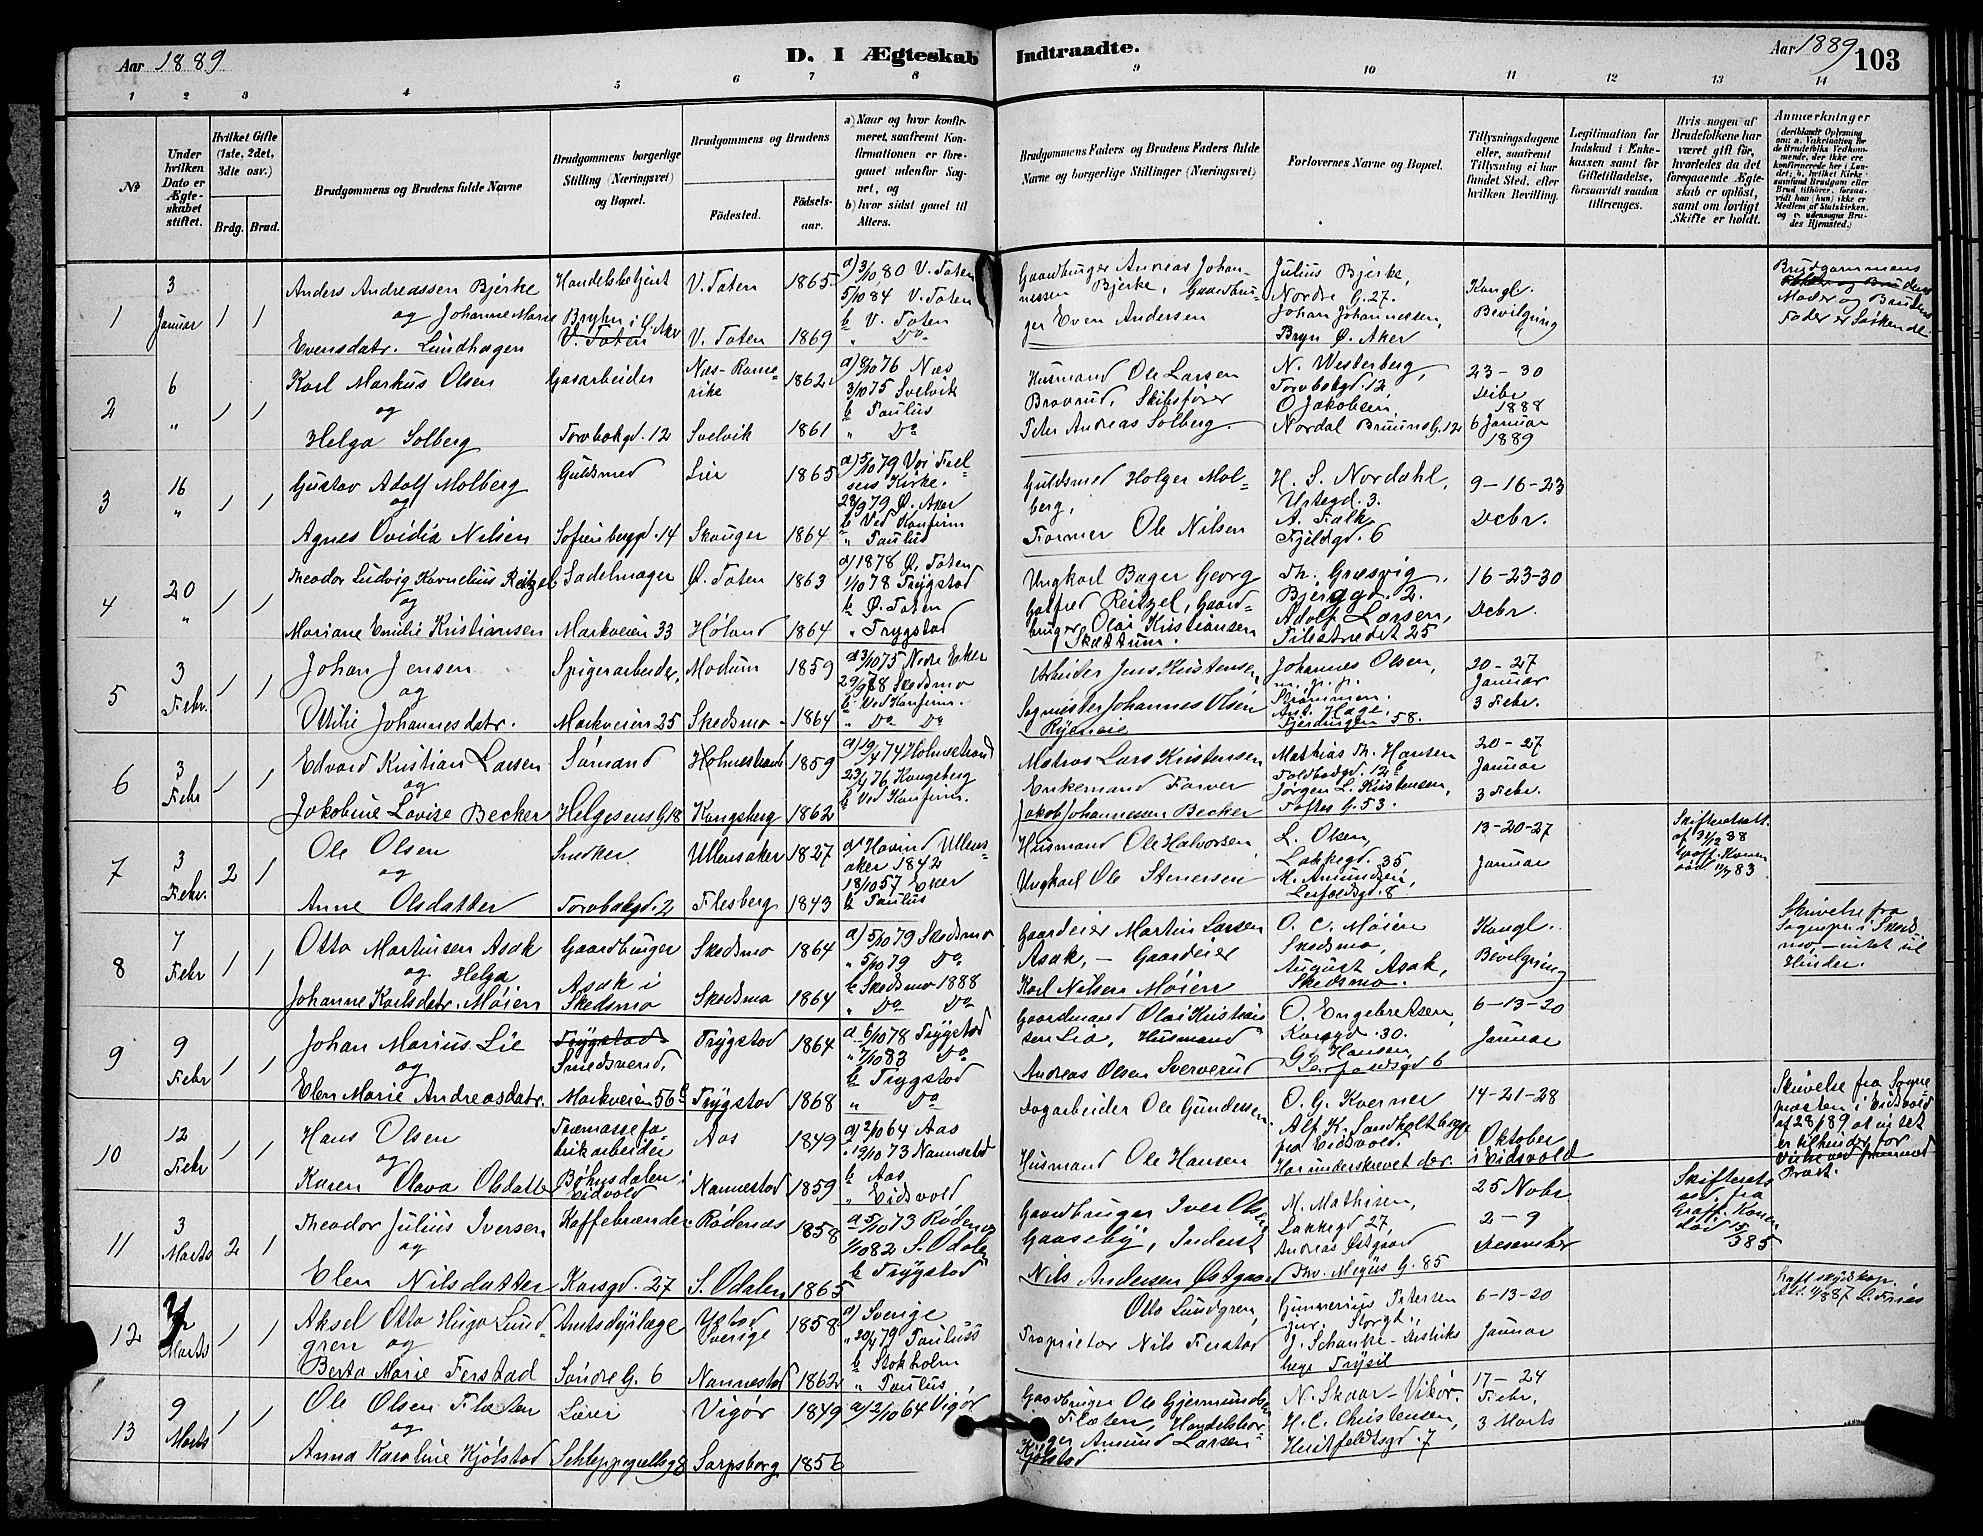 Aar 1889
D. I Ægteskab Indtraadte.
Aar 1889
103
1 2 3 4 5 6 7 8 9 10 11 12 13 14
№
Under hvilken Dato er Ægteskabet stiftet.
Hvilket Gifte (1ste, 2det, 3dte osv.)
Brdg. Brud.
Brudgommens og Brudens fulde Navne
Brudgommens borgerlige Stilling (Næringsvei) og Bopæl.
Brudgommens og Brudens
Fødested.
Fødselsaar.
a) Naar og hvor konfirmeret, saafremt Konfirmationen er foregaaet udenfor Sognet, og
b) hvor sidst gaaet til Alters.
Brudgommens Faders og Brudens Faders fulde Navne og borgerlige Stillinger (Næringsvei)
Forlovernes Navne og Bopæl.
Tillysningsdagene eller, saafremt Tillysning ei har fundet Sted, efter hvilken Bevilling.
Legitimation for Indskud i Enkekassen samt for Giftetilladelse, forsaavidt saadan tiltrænges.
Hvis nogen af Brudefolkene har været gift før, hvorledes da det foregaaende Ægteskab er opløst, samt om lovligt Skifte er holdt.
Anmærkninger
1
3 Januar
1 1
Anders Andreassen Bjerke
og Johanne Marie
Evensdatr. Lundhagen
Handelsbetjent
Bryhn i Ø. Aker
V. Toten
V. Toten 1865
V. Toten 1869
a) 3/10 80 V. Toten
5/10 84 V. Toten
b V. Toten
" Do
Gaardbruger Andreas Johannessen Bjerke, Gaardbruger Even Andersen
Julius Bjerke,
Nordre G. 27.
Johan Johannessen,
Bryn Ø. Aker
Kongl.
Bevilgning
Brudgommens
Moder og Brudens
Fader er Søskende
2
6 "
1 1
Karl Markus Olsen
og
Helga Solberg
Gasarbeider
Torvbakgd. 12
Næs - Romerike 1862
Svelvik 1861
a) 8/10 76 Næs
3/10 75 Svelvik
b Paulus
" Do
Husmand Ole Larsen
Brovrud, Skibsfører
Peter Andreas Solberg.
N. Westerberg,
Torvbakgd. 12
O. Jakobsen,
Nordal Bruuns G. 12
23-30
Debr
1888
6 Januar
1889
3
16 "
1 1
Gustav Adolf Molberg
og
Agnes Ovidia Nilsen
Guldsmed
Sofienberggd. 14
Lier 1865
Skouger 1864
a) 5/10 79 Vor Frelsers Kirke.
28/9 79 Ø. Aker
b Ved Konfirm
" Paulus
Guldsmed Holger Molberg,
Former Ole Nilsen
H. S. Nordahl,
Urtegd. 3.
A. Falk,
Fjeldgd. 6
9-16-23
Debr.
4
20 "
1 1
Theodor Ludvig Kornelius Reitzel
og
Mariane Emilie Kristiansen
Sadelmager
Markveien 33
Ø. Toten 1863
Høland 1864
a) 1878 Ø. Toten
1/10 78 Trygstad
b Ø. Toten
" Trygstad
Ungkarl Bager Georg
Gotfred Reitzel, Gaardbruger Olai Kristiansen
Skattum.
Th. Græsvig,
Bjerggd. 2.
Adolf Larsen,
Pilestrædet 25
16-23-30
Debr.
5
3 Febr.
1 1
Johan Jensen
og
Ottilie Johannesdatr.
Spigerarbeider,
Markveien 25
Modum 1859
Skedsmo 1864
a 3/10 75 Nedre Eker
29/9 78 Skedsmo
b Ved Konfirm.
" Do Do
Arbeider Jens Kristensen
Sagmester Johannes Olsen
Johannes Olsen,
m. p. p.
Strømmen.
Ant. Hage,
Fjerdingen 58.
20-27
Januar
3 Febr.
6
3 Febr
1 1
Edvard Kristian Larsen
og
Jakobine Lovise Becker
Sømand
Helgesens G 18
Holmestrand 1859
Kongsberg 1862
a) 19/4 74 Holmestrand
23/4 76 Kongsberg
b Ved Konfirm.
Matros Lars Kristensen
Enkemand Farver
Jakob Johannessen Becker
Mathias Th. Hansen
Toldbodgd. 12
Jørgen L. Kristensen,
Toftes G. 53.
20-27
Januar
3 Febr.
7
3 Febr.
2 1
Ole Olsen
og
Anne Olsdatter
Snedker
Torvbakgd. 2
Ullensaker 1827
Flesberg 1843
a) Hovind Ullensaker 1842
18/10 57 Eker
b Paulus
Husmand Ole Halvorsen
Ungkarl Ole Stenersen
L. Olsen,
Lakkegd. 35
M. Amundsen,
Leirfaldsgd. 8
13-20-27
Januar
Skifteretsatt.
af 31/12 88
Graff. Konen
død 11/7 83
8
7 Febr
1 1
Otto Martinsen Asak
og Helga
Johanne Karlsdatr. Møien
Gaardbruger
Asak i
Skedsmo
Skedsmo 1864
Skedsmo 1864
a) 5/10 79 Skedsmo
" 5/10 79 Do
b Skedsmo 1888
" Do Do
Gaardeier Martin Larsen
Asak, - Gaardeier
Karl Nilsen Møien
O. C. Møien
Skedsmo,
August Asak,
Skedsmo.
Kongl.
Bevilgning
Skrivelse fra
Sognepr. i Skedsmo - intet til
Hinder.
9
9 Febr
1 1
Johan Marius Lie
og
Elen Marie Andreasdatr.
Trygstad
Smedsvend,
Markveien 56
Trygstad 1864
Trygstad 1868
a 6/10 78 Trygstad
" 7/10 83 Do
b Trygstad
" Do
Gaardmand Olai Kristiansen Lie, Husmand
Andreas Olsen Sververud
O. Engebretsen,
Korsgd. 30.
G. Hansen,
Leirfaldsgd 6
6-13-20
Januar
10
12 Febr
1 1
Hans Olsen
og
Karen Olava Olsdatter
Træmassefabrikarbeider
Bøhnsdalen i
Eidsvold
Aas 1849
Nannestad 1859
a) 2/10 64 Aas
" 19/10 73 Nannestad
b Aas
" Eidsvold
Dagarbeider Ole Gundersen
Husmand Ole Hansen
O. G. Kverner
Alf. K. Sandholtbygge
fra Eidsvold.
Har underskrevet der.
14-21-28
Oktober
i Eidsvold
Skrivelse fra Sognepræsten i Eidsvold
af 28/1 89 at intet
er tilhinder for
Vielse ved fremmed
Præst.
11
3 Marts
2 1
Theodor Julius Iversen
og
Elen Nilsdatter
Kaffebrænder
Korsgd. 27
Rødenæs 1858
S. Odalen 1865
a 5/10 73 Rødenæs
1/10 82 S. Odalen
b Trygstad
Gaardbruger Iver Olsen
Gaaseby, Inderst
Nils Andersen Østgaard
M. Mathisen,
Lakkegd 27,
Andreas Østgaard
Thv. Meyers G. 85
25 Nobr
2-9
Desember
Skifterets
att. fra
Graff. Konen
død 15/3 85
12
Marts
1 1
Aksel Otto Hugo Lundgren og
Berta Marie Ferstad
Amtsdyrlæge
Søndre G. 6
Ystad
Sverige 1858
Nannestad 1862
a) Sverige
" 20/4 79 Paulus
b Stokholm
" Paulus
Otto Lundgren,
Proprietær Nils Ferstad
Gunnerius Petersen
jur. Storgt.,
J. Schanke - Distriktslæge Trysil
6-13-20
Januar
13
9 Marts
1 1
Ole Olsen Flaten
og
Anna Karoline Kjølstad
Lærer
Schleppegrellsg 8
Vigør 1849
Sarpsborg 1856
a) 2/10 64 Vigør
Gaardbruger Ole Gjermundsen
Flaten, Handelsborger Amund Larsen
Kjølstad
N. Skaar - Vikør.
H. C. Christensen,
Huitfeldtsgd. 7
17-24
Febr.
3 Marts